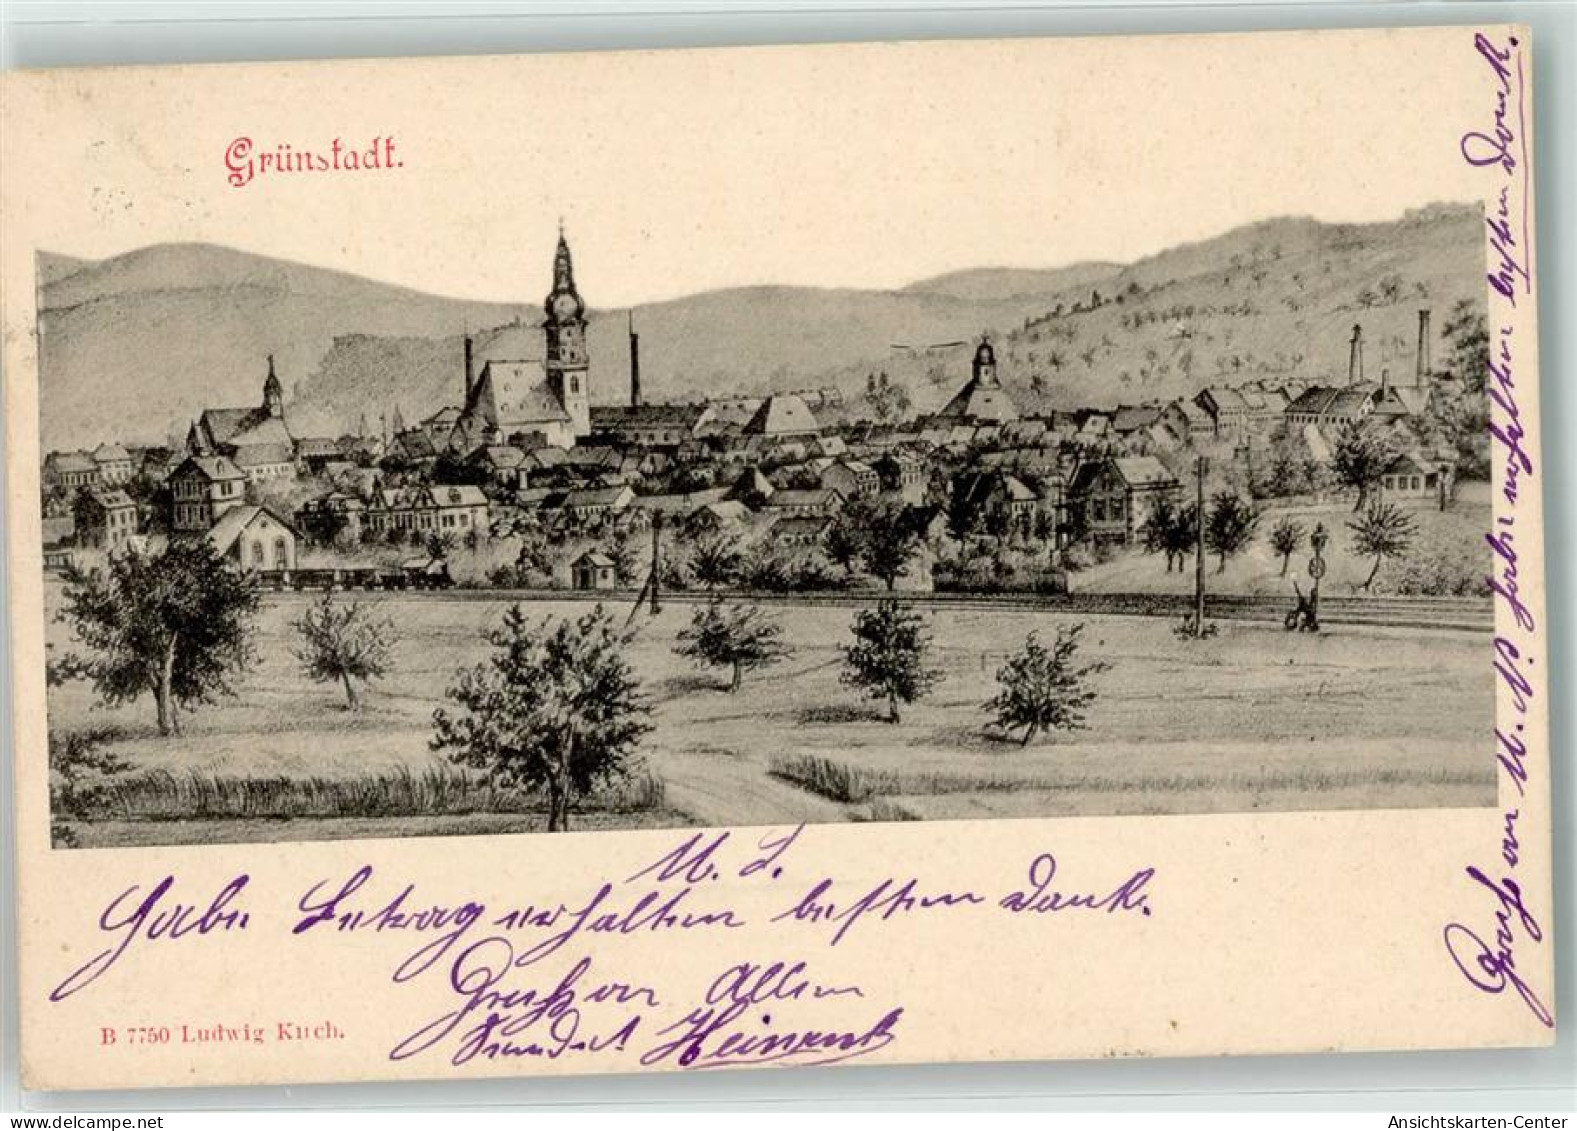 Grünstadt.
M. L.
Habe Betrag erhalten besten Dank.
Gruß an Allen
sendet Heinrich
B 7750 Ludwig Kirch.
Gruß an M. N. habe erhalten besten Dank.
delcampe.net
Ansichtskarten-Center